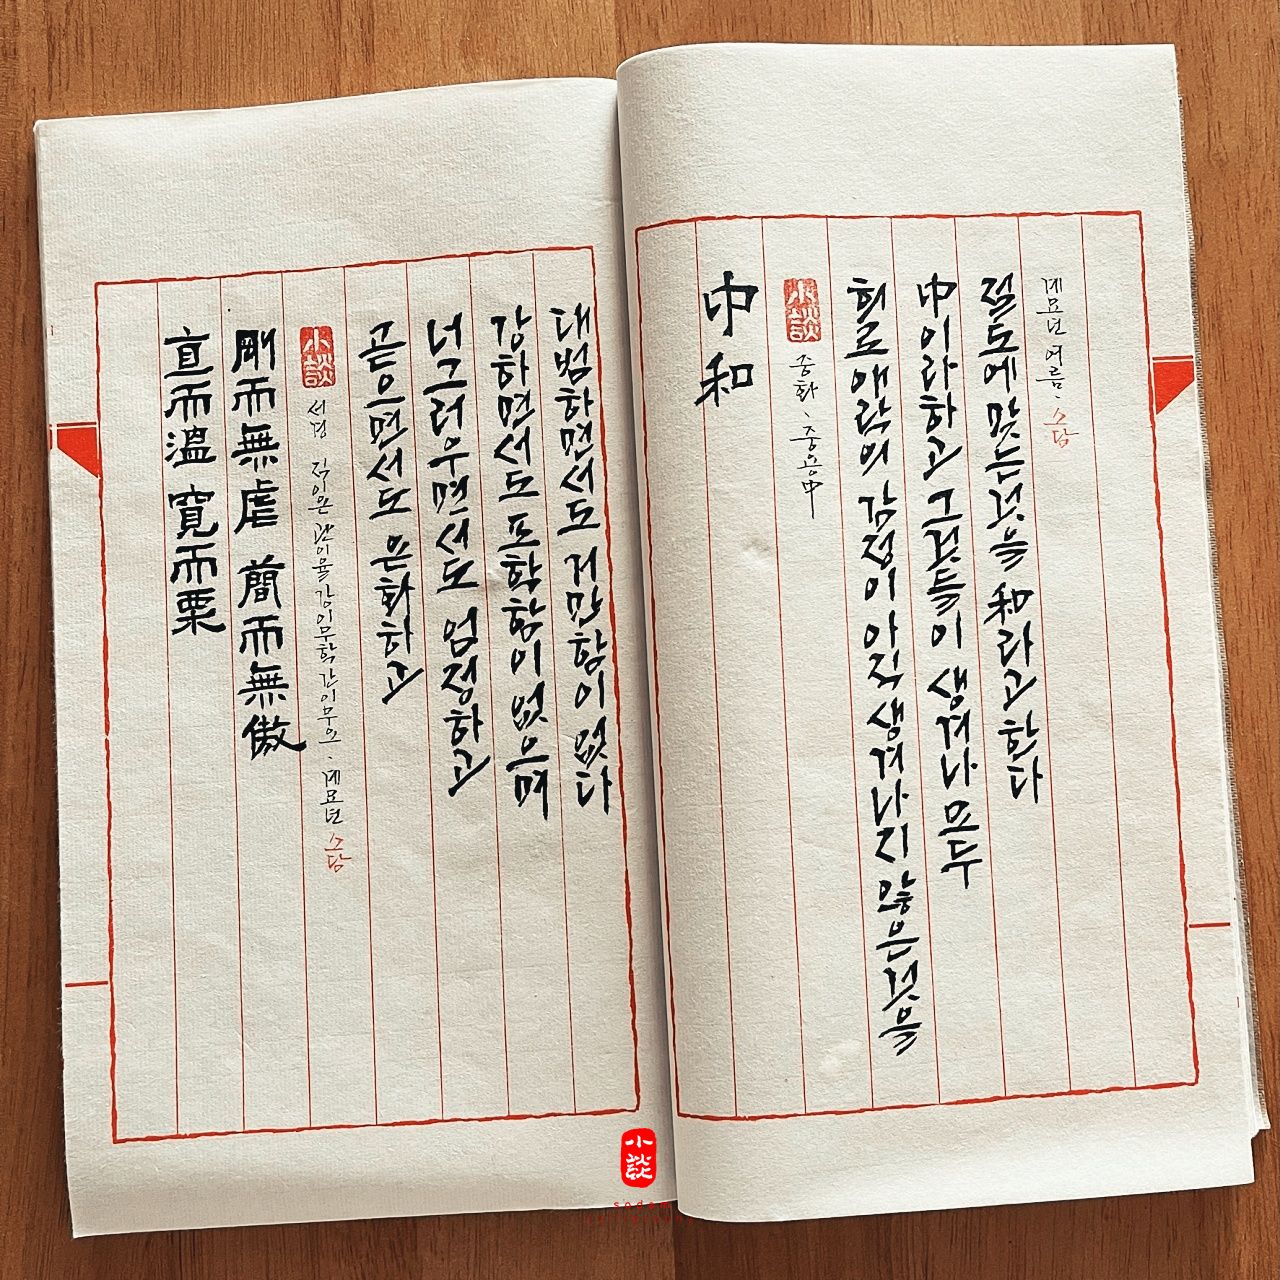 直而溫 寬而栗
剛而無虐 簡而無傲
小談 서경 직이온 관이율 강이무학 간이무오. 계묘년 소담
곧으면서도 온화하고
너그러우면서도 엄정하고
강하면서도 포학함이 없으며
대범하면서도 거만함이 없다
中和
小談 중화. 중용中
희로애락의 감정이 아직 생겨나지 않은것을
中이라하고 그것들이 생겨나 모두
절도에 맞는것을 和라고한다
계묘년 여름. 소담
小談
sodam